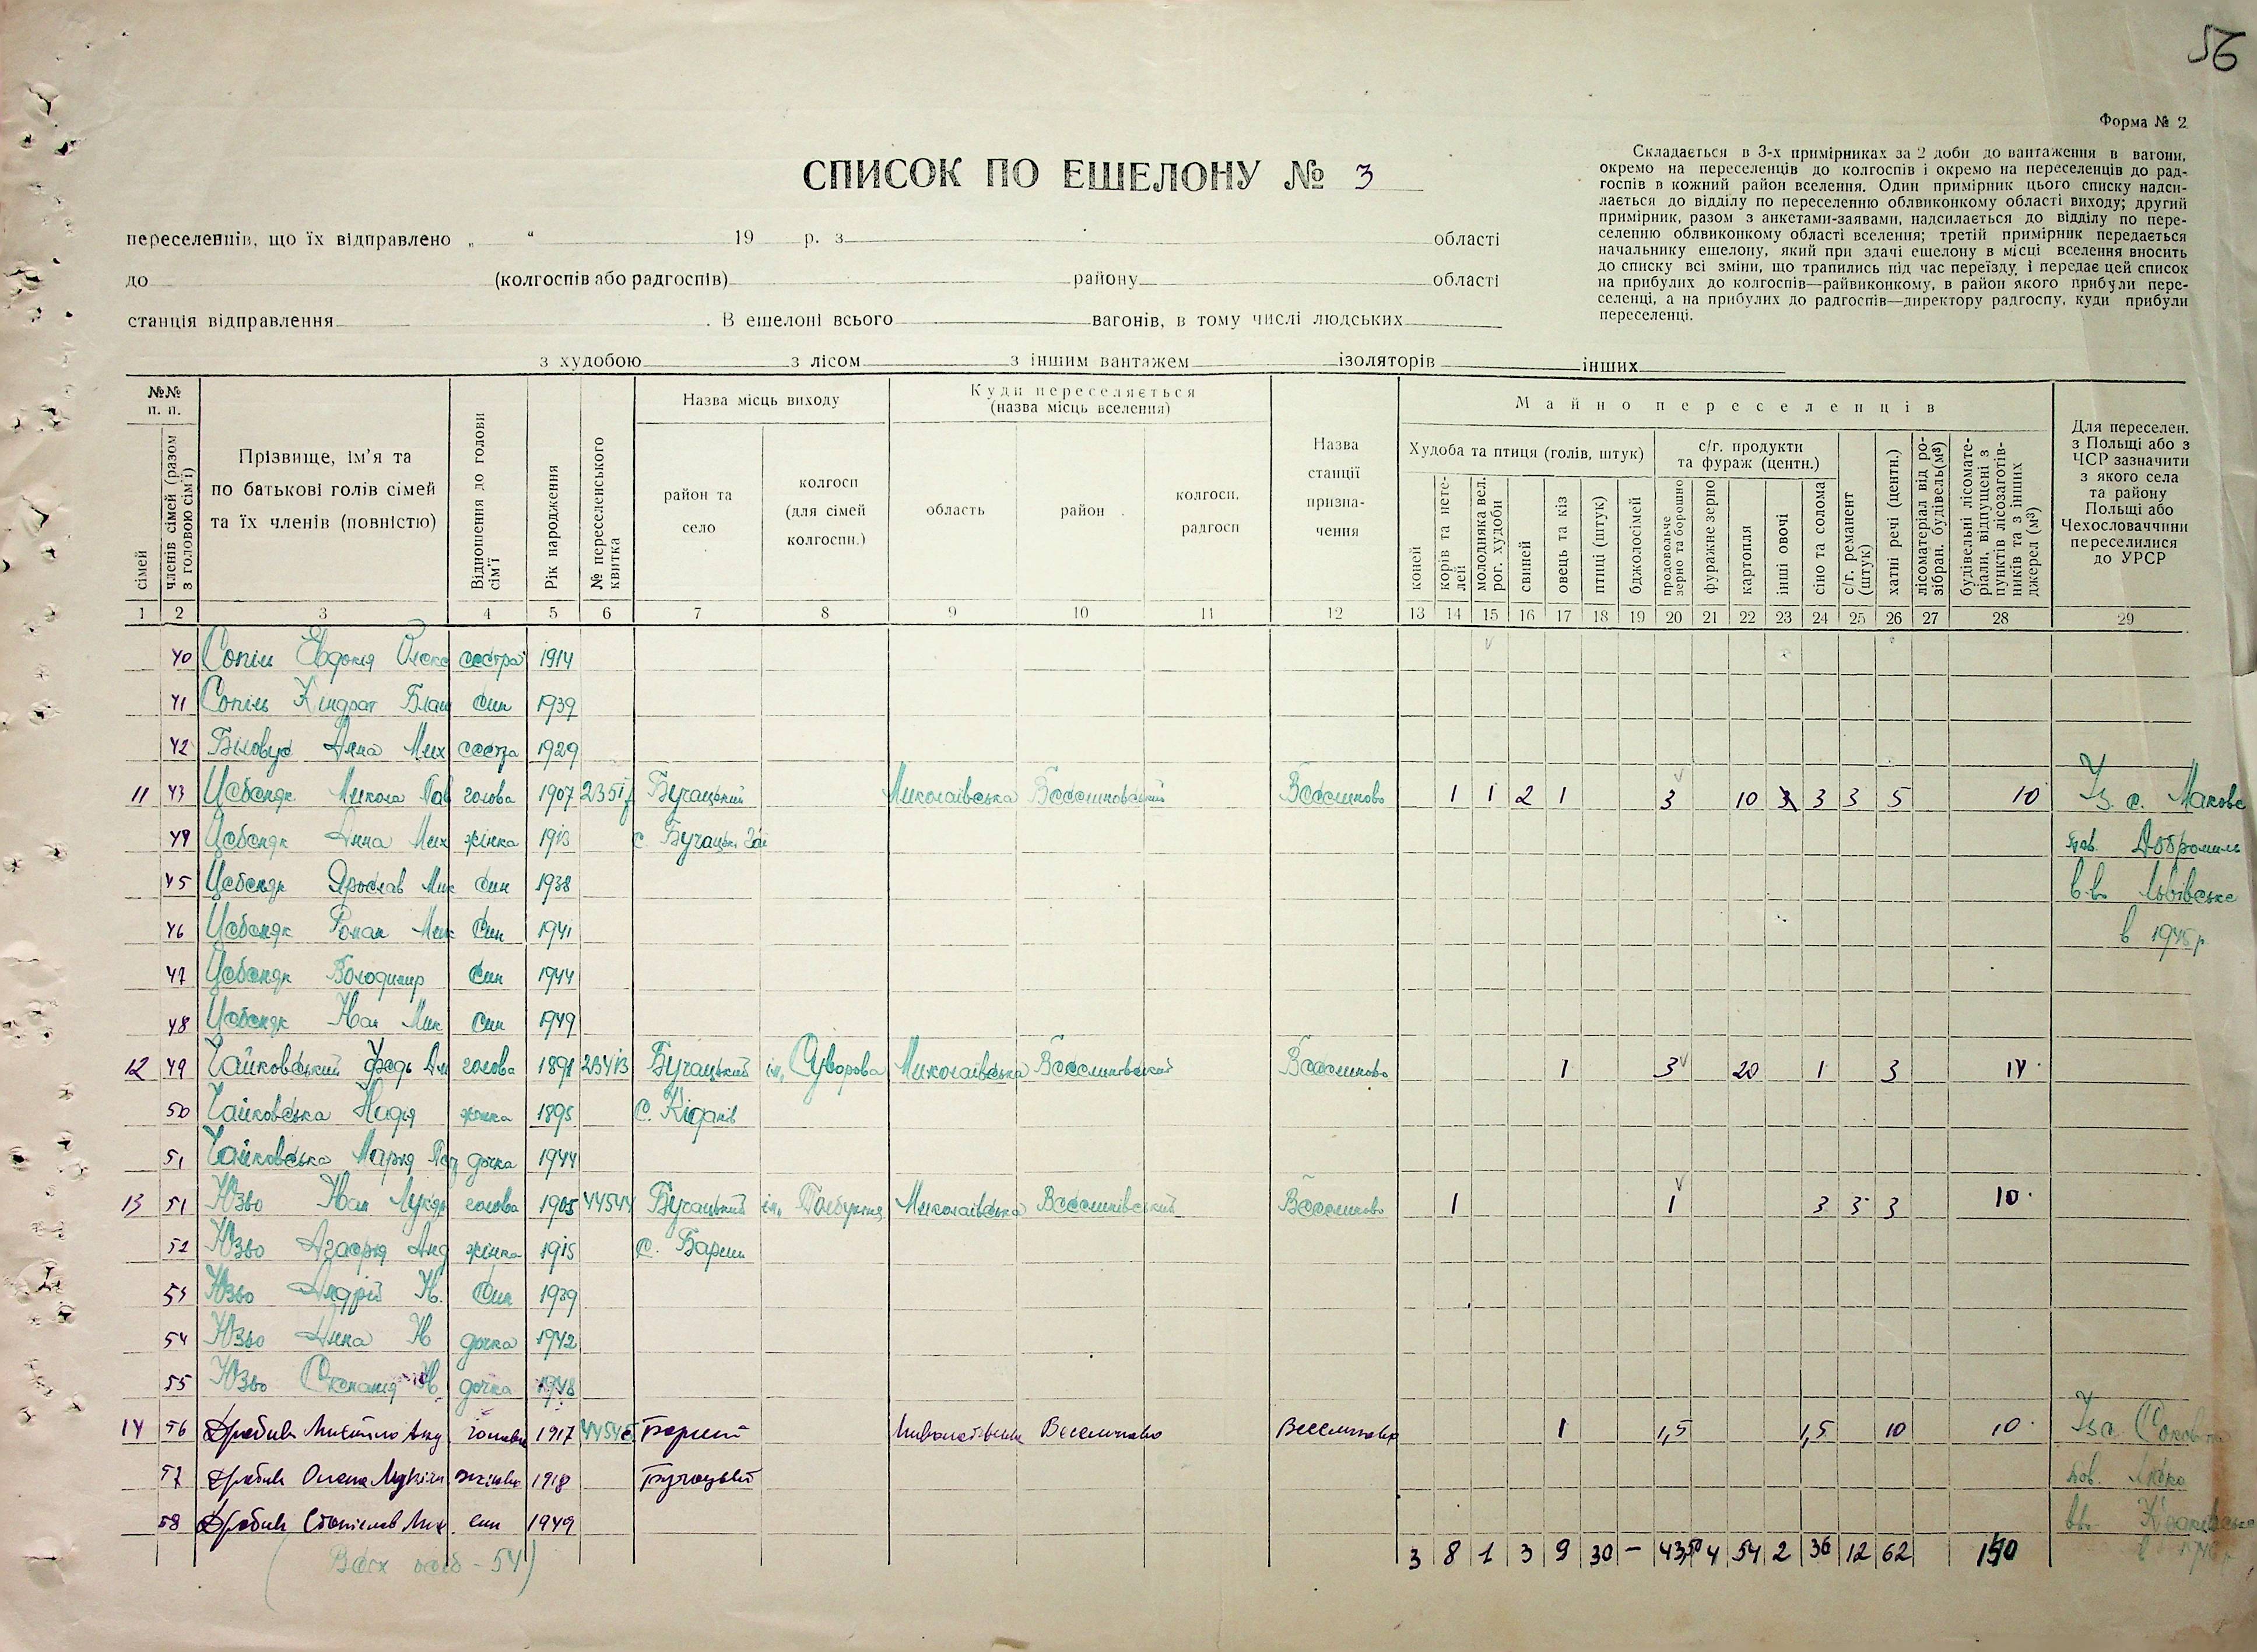 56
Форма № 2
СПИСОК ПО ЕШЕЛОНУ № 3
Складається в 3-х примірниках за 2 доби до вантаження в вагони,
окремо на переселенців до колгоспів і окремо на переселенців до рад-
госпів в кожний район вселення. Один примірник цього списку надси-
лається до відділу по переселенню облвиконкому області виходу; другий
примірник, разом з анкетами-заявами, надсилається до відділу по пере-
селенню облвиконкому області вселення; третій примірник передається
начальнику ешелону, який при здачі ешелону в місці вселення вносить
до списку всі зміни, що трапились під час переїзду, і передає цей список
на прибулих до колгоспів—райвиконкому, в район якого прибули пере-
селенці, а на прибулих до радгоспів—директору радгоспу, куди прибули
переселенці.
переселенців, що їх відправлено „ “ 19 р. з області
до (колгоспів або радгоспів) району області
станція відправлення . В ешелоні всього вагонів, в тому числі людських
з худобою з лісом з іншим вантажем ізоляторів інших
№№ п. п.
сімей
членів сімей (разом з головою сім'ї)
Прізвище, ім'я та по батькові голів сімей та їх членів (повністю)
Відношення до голови сім'ї
Рік народження
№ переселенського квитка
Назва місць виходу
район та село
колгосп (для сімей колгоспн.)
Куди переселяється (назва місць вселення)
область
район
колгосп, радгосп
Назва станції призна-чення
Майно переселенців
Худоба та птиця (голів, штук)
коней
корів та нете-лей
молодняка вел. рог. худоби
свиней
овець та кіз
птиці (штук)
бджолосімей
с/г. продукти та фураж (центн.)
продовольче зерно та борошно
фуражне зерно
картопля
інші овочі
сіно та солома
с/г. реманент (штук)
хатні речі (центн.)
лісоматеріал від ро-зібран. будівель(м³)
будівельні лісомате-ріали, відпущені з пунктів лісозаготів-ників та з інших джерел (м³)
Для переселен. з Польщі або з ЧСР зазначити з якого села та району Польщі або Чехословаччини переселилися до УРСР
1 2 3 4 5 6 7 8 9 10 11 12 13 14 15 16 17 18 19 20 21 22 23 24 25 26 27 28 29
40 Сопіль Євдокія Олекс сестра 1914
41 Сопіль Кіндрат син 1939
42 Біловус Анна Мих сестра 1929
11 43 Микола Пав голова 1907 Бучацький Миколаївська Веселиновський Веселиново 1 1 2 1 3 10 3 3 5 10 Із с.
44 Анна Мих жінка 1913 с. Бучацьк. Доброміль
45 Ярослав Мик син 1938 Львівське
46 Роман Мик син 1941 в 1945 р
47 Володимир син 1944
48 Іван Мик син 1949
12 49 Чайковський Федь голова 1891 23413 Бучацький ім. Суворова Миколаївська Веселиновский Веселиново 1 3 20 1 3 14
50 Чайковська Надія жінка 1895 с. Кіданів
51 Чайковська Марія дочка 1944
13 51 Юзьо Іван Лукян голова 1905 44544 Бучацький ім. Толбухіна Миколаївська Веселинівський Веселиново 1 1 3 3 3 10
52 Юзьо Анд жінка 1915 с. Бариш
53 Юзьо Андрій І. син 1939
54 Юзьо Анна І дочка 1942
55 Юзьо І. дочка 1948
14 56 Михайло Анд. голова 1917 Бариш Веселиново Веселиново 1 1,5 1,5 10 10
57 Олена жінка 1918 Бучацький
58 Станіслав Мих. син 1949
(Всіх осіб - 54)
3 8 1 3 9 30 - 43,50 4 54 2 36 12 62